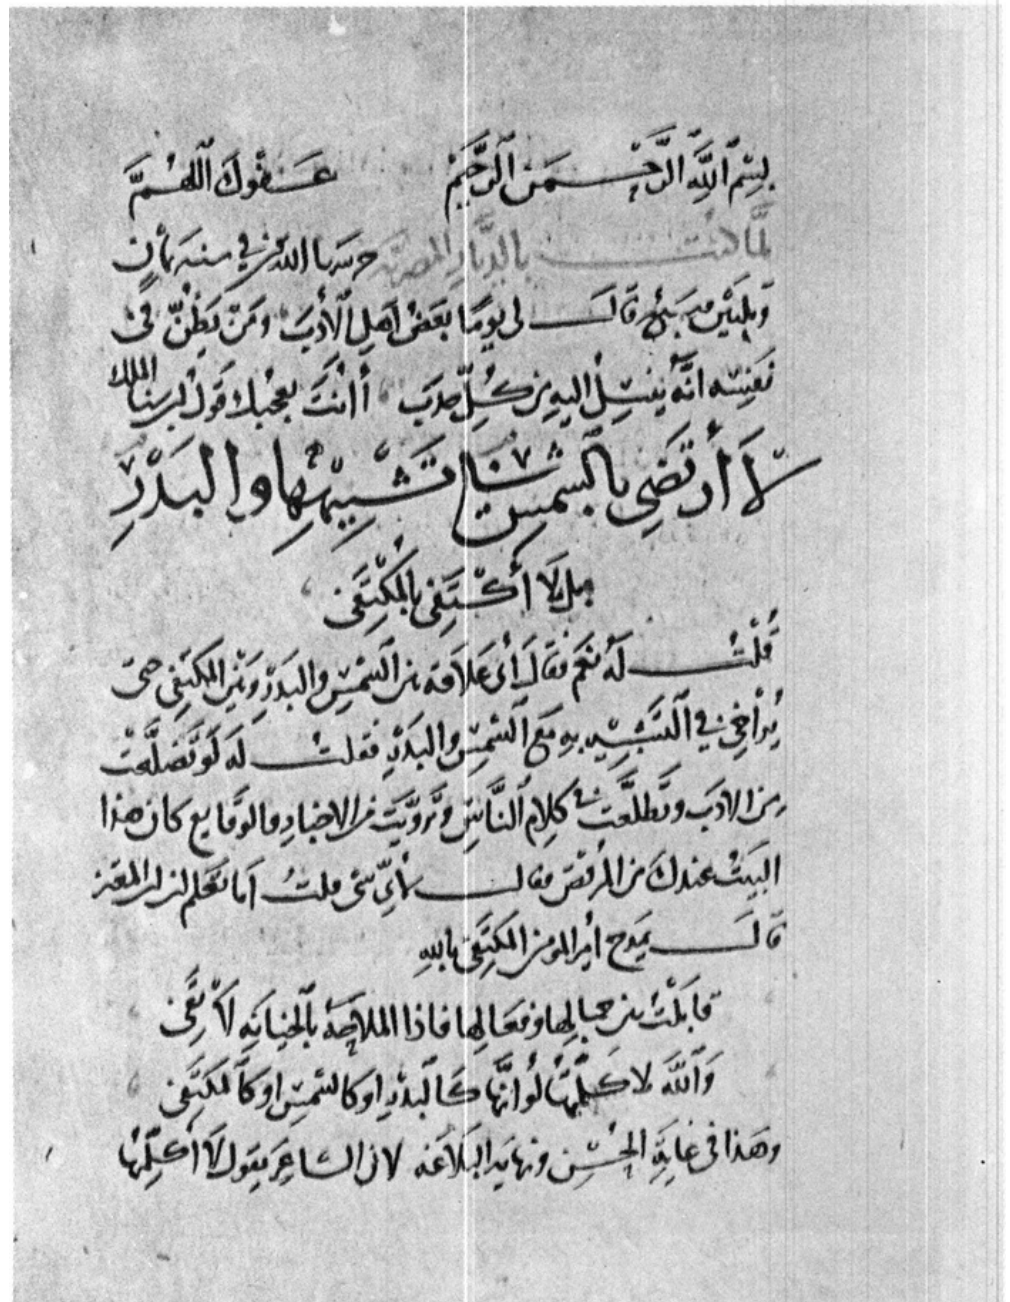 بِسْمِ ٱللَّهِ ٱلرَّحْمَنِ ٱلرَّحِيمِ عَفْوَكَ ٱللَّهُمَّ
لمَّا كنتُ بالدِّيَارِ المِصريَّة حرسها الله تعـ في سنة ثمانٍ
وثلثين وسبع مئة قَالَ لى يومًا بعَضُ أهلِ ٱلأَدَبَ ومَنْ يَظُنُّ فى
نفسه انَّهُ ينسِلُ اليه من كُلِّ حدَب أأنتَ يعجبك قَولُ ابن سنا الملك
لَا أرتَضِي بالشمسِ تَشْبِيْهَها والبَدْرِ
بل لَا أَكْتَفِى بالمُكْتَفِى
قُلْتُ لَهُ نَعَم فقالَ أىُّ عَلاقة بين الشمسِ والبدَرْ وبَيْن المكتفِى حتى
يُؤاخِىَ في التَشْبِيه بهِ مَعَ الشمسِ والبَدْرِ فقلتُ لَهُ لَو تَضلَّعْتَ
من الادَبِ وتَطلَّعْت في كلامِ ٱلنَّاسِ وتَروَّيَتَ من الاخبار والوقَايع كان هذا
البَيتُ عندكَ من المُرقِص فقالَ لأىِّ شىءٍ قلتُ أما تعلم ان ابن المعتز
قَالَ يمدح أمير المومنين المكتَفِىَ بالله
قابَلْتُ بين جمالِها وفعَالِها فاذا الملاحَةُ بالخيانةِ لَا تَفِى
وَٱللَّهِ لا كلَّمتُها لَوْ أنَّها كَالبَدْرِ او كالشمسِ او كَالمكتَفِى
وهَذا فى غايَةِ الحُسْنِ ونهايةِ البَلاغَه لان الشاعِرَ يقول لَا أكلِّمُها